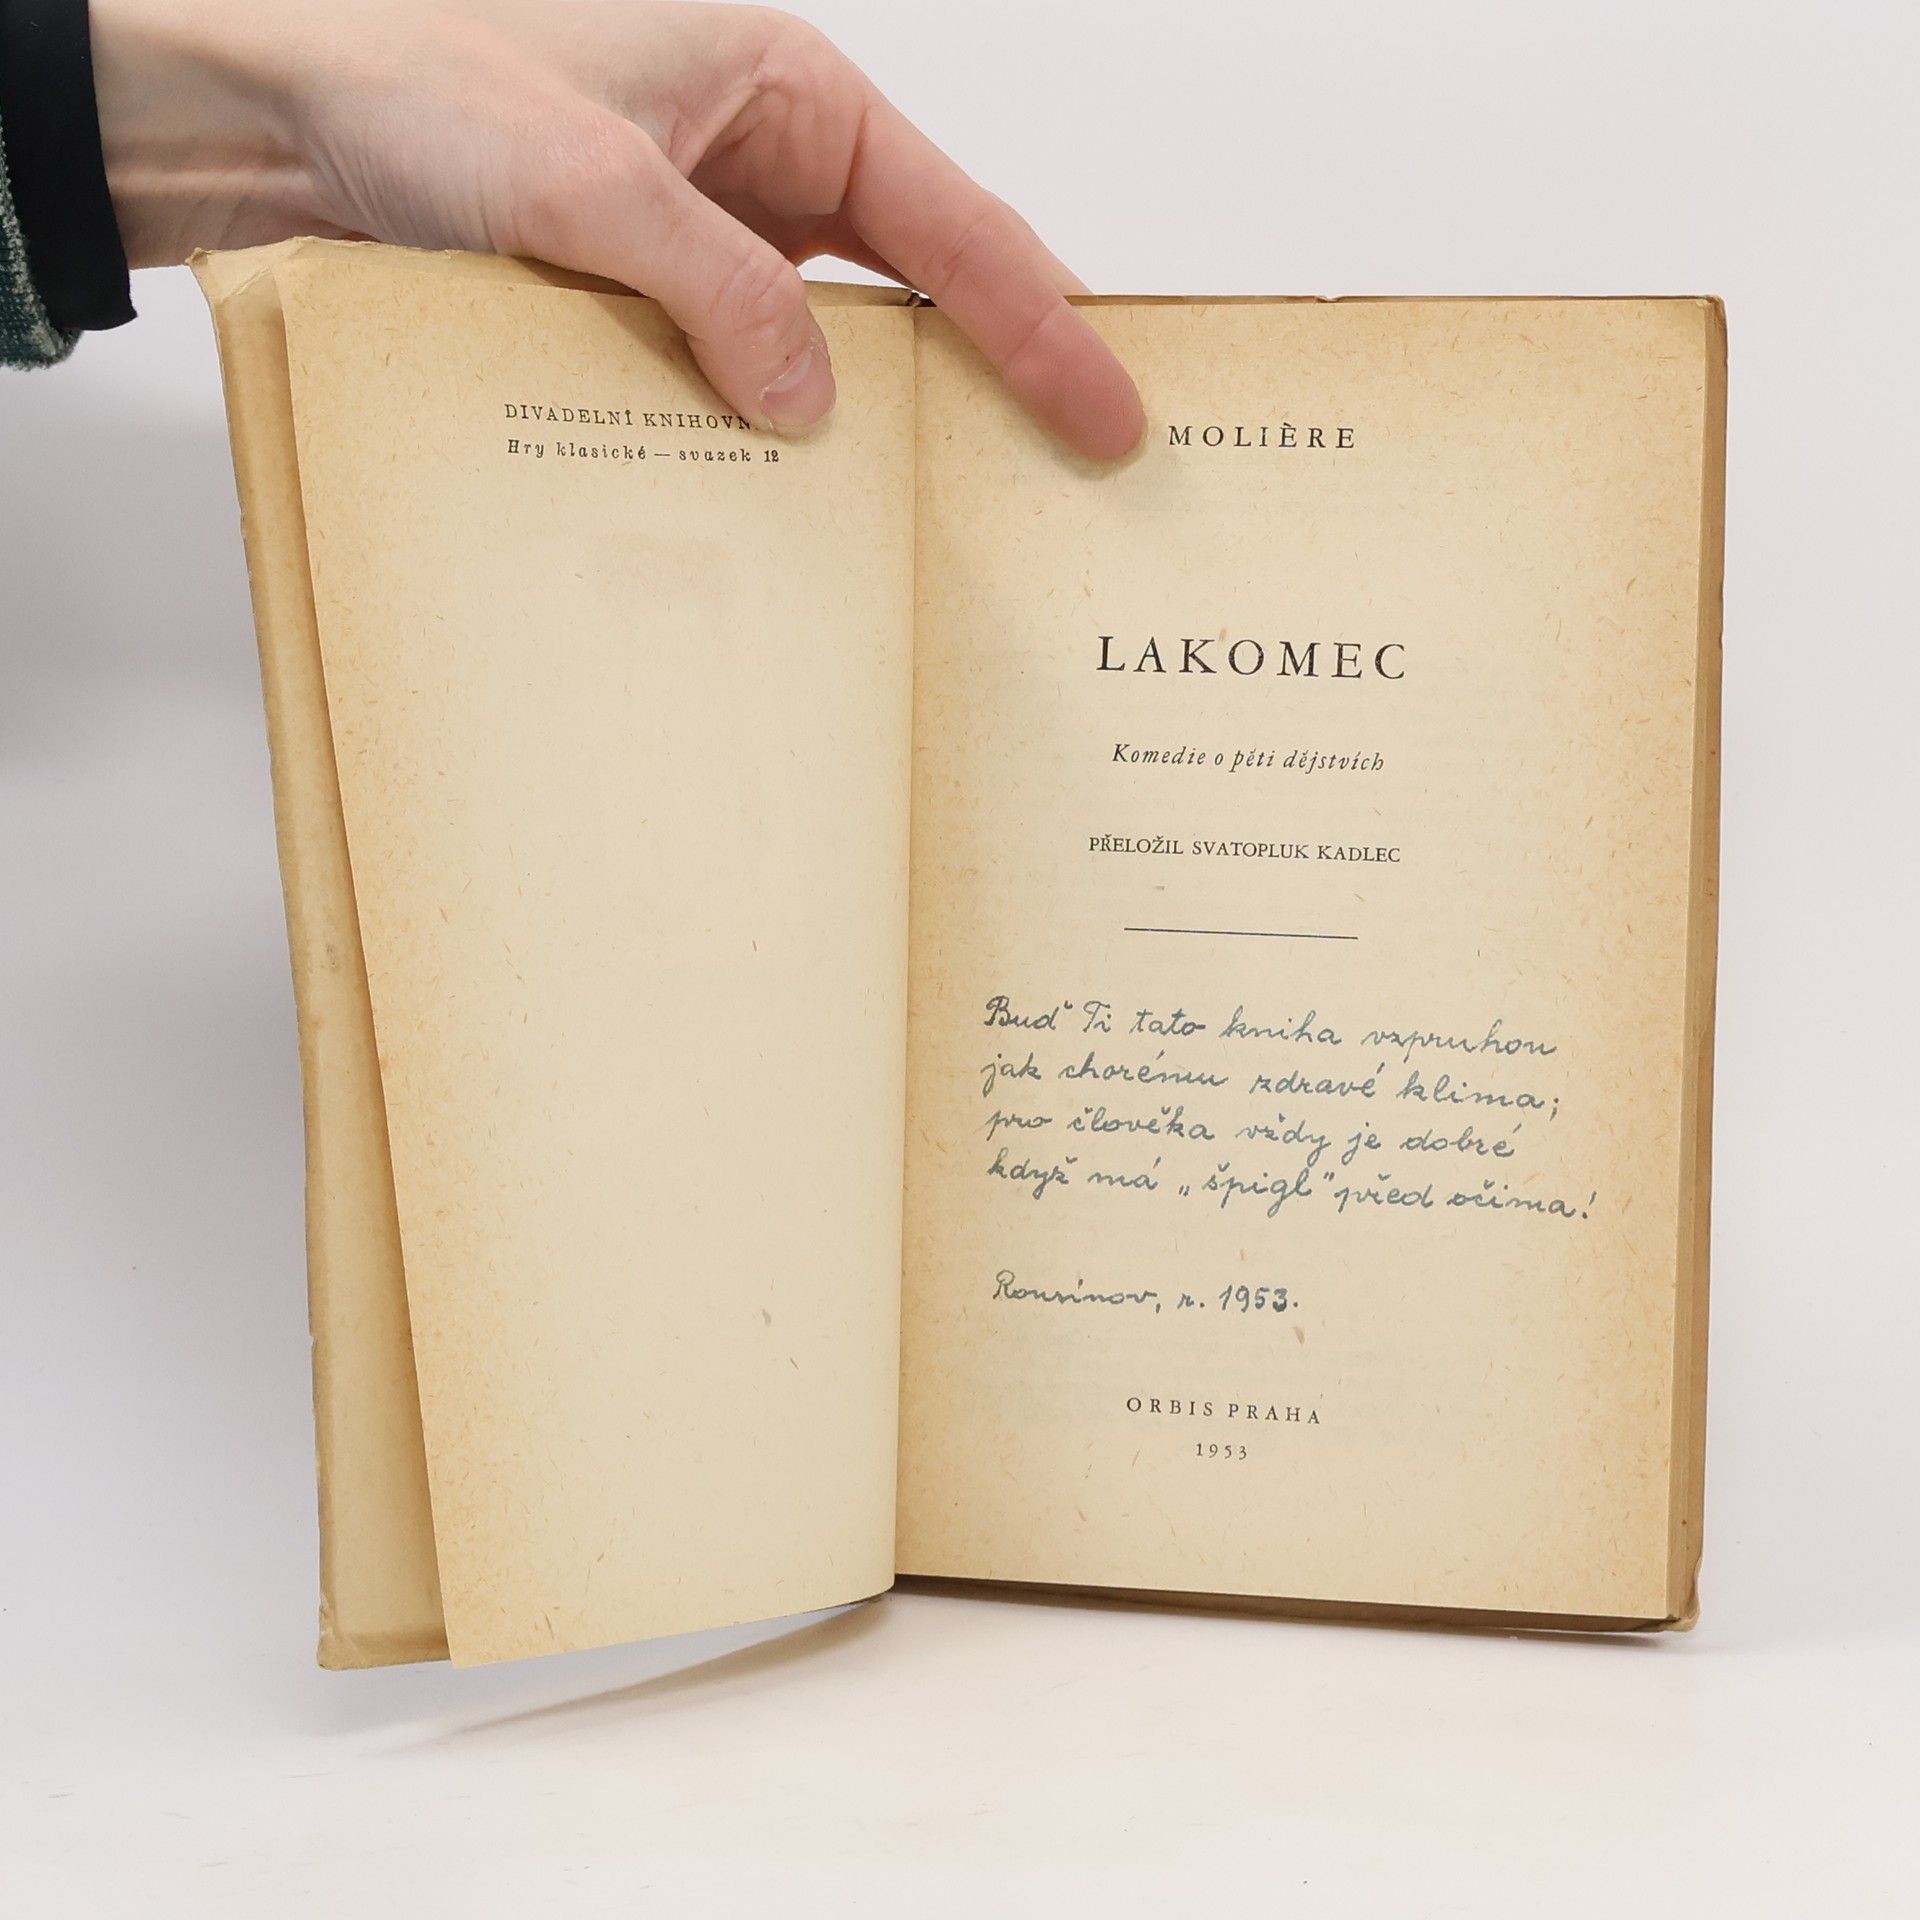 DIVADELNÍ
Hry klasické — svazek 12
MOLIÈRE
LAKOMEC
Komedie o pěti dějstvích
PŘELOŽIL SVATOPLUK KADLEC
Buď Ti tato kniha vzpruhou
jak chorému zdravé klima;
pro člověka vždy je dobré
když má „špigl" před očima!
Rousínov, r. 1953.
ORBIS PRAHA
1953